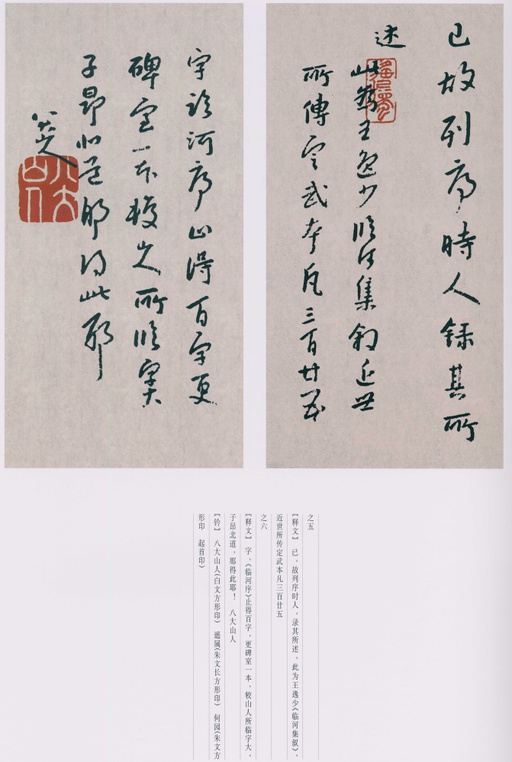 已故列序時人録其所
述
此爲王逸少臨河集叙近世
所傳定武本凡三百廿五
字臨河序止得百字更
碑室一本較山人所臨字大
子昂北道那得此耶
八大山人
八大山人
之五
【释文】 已，故列序时人，录其所述。此为王逸少《临河集叙》，
近世所传定武本凡三百廿五
之六
【释文】 字，《临河序》止得百字，更碑室一本，较山人所临字大，
子昂北道，那得此耶！ 八大山人
【钤】 八大山人（白文方形印） 遥属（朱文长方形印） 何园（朱文方
形印 起首印）